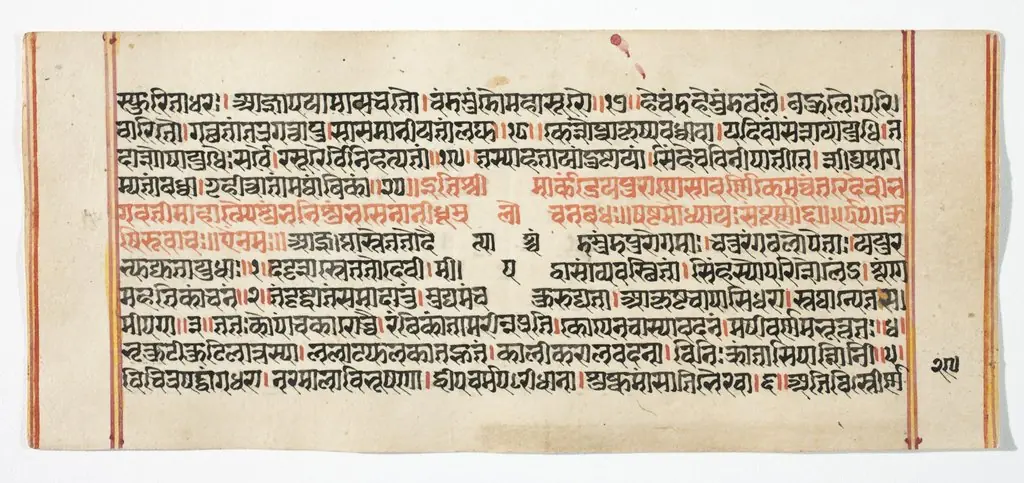 स्फुरिताधरः। आज्ञापयामासचतौ। चंडमुंडौमहासुरौ॥ हेचंडहेमुंडबलै। र्बहुलैः परि
वारितौ। गछतंतत्रगत्वाच। सासमानीयतांलघु॥१८॥ केशेष्वाकृष्यबध्वावा। यदिवःसंशयोयुधि। त
दाशेषायुधैः सर्वै। रसुरैर्विनिहन्यतां॥१९ तस्यांहतायांदुष्टायां। सिंहेचविनिपातिते। शीघ्रमाग
म्यतांबध्वा। गृहीत्वातामथांबिकां॥२०॥इतिश्री मार्कंडेयपुराणेसावर्णिकेमन्वंतरेदेवी
गवतीमाहात्म्ये धूम्र लो चनवधः॥षष्टमोध्यायः॥ ऋ
षिरुवाच॥ आज्ञप्तास्तेततोदै त्या श्चं डमुंडपुरोगमाः। चतुरंगबलोपेताः। ययुर
भ्युद्यतायुधाः॥१। ददृशुस्तेततोदेवी। मी। ष द्धासांव्यवस्थितां। सिंहस्योपरिशैलेंऽ। शृंगे
महतिकांचने॥२। तेदृष्ट्वातांसमादातुं। मुद्यमंच क्रुरुद्यता। आकृष्टचापासिधरा। स्तथान्येतत्स
मीपगाः॥३॥ ततःकोपंचकारोच्चै। रंबिकातानरीन्प्रति। कोपेनचास्यावदनं। मषीवर्णमभूत्ततः।४।
भ्रुकुटीकुटिलात्तस्या। ललाटफलकाद्द्रुतं। कालीकरालवदना। विनिःक्रांतासिपाशिनी॥५।
विचित्रखट्वांगधरा। नरमालाविभूषणा। द्वीपिचर्मपरीधाना। शुष्कमांसातिभैरवा।६। अतिविस्तीर्ण